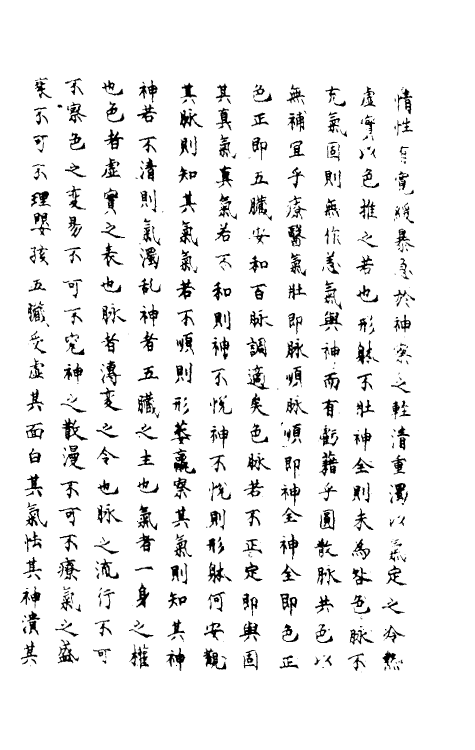 情性有寬緩暴急於神察之輕清重濁以氣定之冷熱
虛實以色推之若也形躰不壯神全則未為咎色脉不
充氣固則無作恙氣與神而有虧藉乎圓散脉共色以
無補宜乎療醫氣壯即脉順脉順即神全神全即色正
色正即五臟安和百脉調適矣色脉若不正定即輿固
其真氣真氣若不和則神不悅神不悅則形躰何安觀
其脉則知其氣氣若不順則形羸察其氣則知其神
神若不清則氣濁亂神者五臟之主也氣者一身之權
也色者虛實之表也脉者傳變之令也脉之流行不可
不察色之變易不可不究神之散漫不可不療氣之盛
衰不可不理嬰孩五臟受虛其面白其氣怯其神潰其